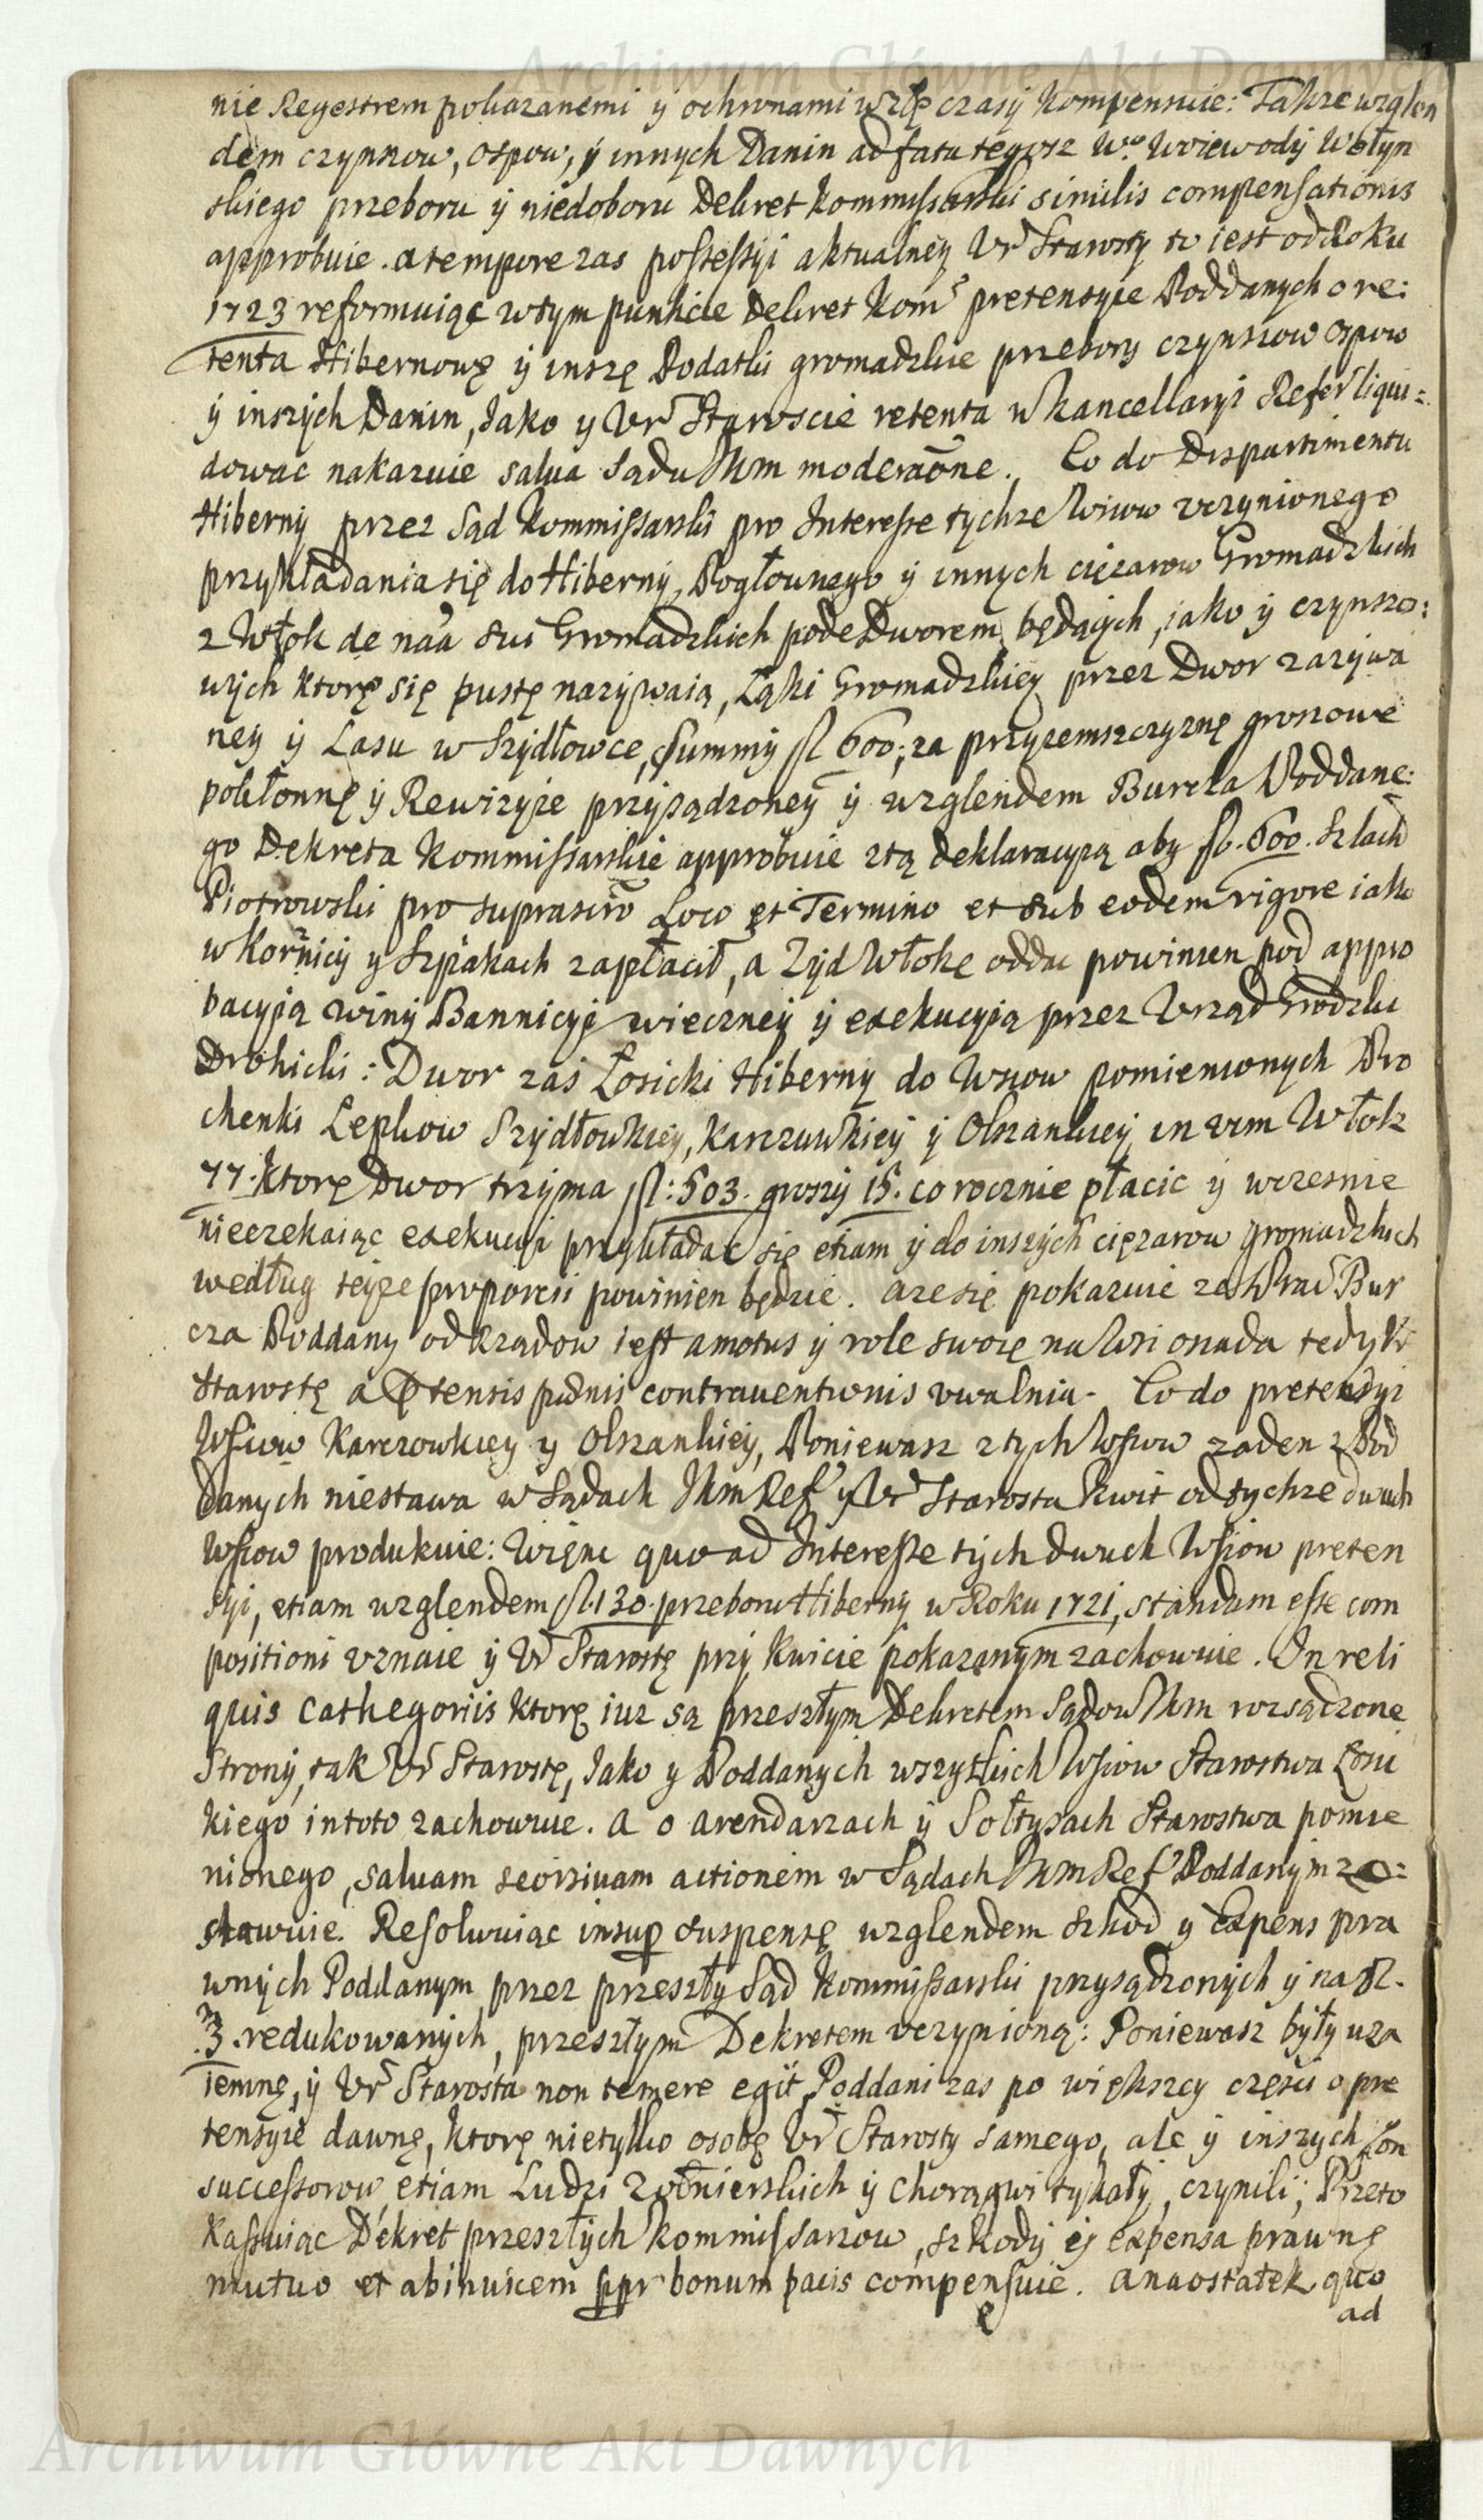 Archiwum Główne Akt Dawnych
nie Regestrem pokazanemi y ochronami w złę czasy kompensuie: Takze wzglen
dem czynszow, ospow, y innych Danin ad fata tegosz Wo. Woiewody Wołyn
skiego przeboru y niedoboru Dekret kommissarski similis compensationis
approbuie. a tempore zas possessyi aktualney Ur Starosty to iest od Roku
1723 reformuiąc w tym punkcie Dekret Kom pretensyie Poddanych o re:
tenta Hibernowę y inszę Dodatki gromadzkie przebory czynszow ospow
y inszych Danin, Jako y Ur Staroscie retenta w kancellaryi Refer liqui=
dowac nakazuie salva Sądu JKm moderaōne. Co do Dispartimentu
Hiberny przez Sąd Kommissarski pro Interesse tychze Wsiow uczynionego
przykładania się do Hiberny, Pogłownego y innych cięzarow Gromadzkich
z Włok de naa sui Gromadzkich pode Dworem będących, iako y czynszo:
wych ktorę się pustę nazywaią, Łąki Gromadzkiey przez Dwor zazywa
ney y Lasu w Szydłowce, Summy fl 600; za przyzemszczyznę groszowe
pokłonnę y Rewizyie przysądzoney y wzglendem Burcza Poddane:
go Dekreta Kommissarskie approbuie z tą deklaracyią aby fl. 600. Szlach
Piotrowski pro suprascro Loco et Termino et sub eodem rigore iako
w Kornicy y Szpakach zapłacił, a Zyd Włokę oddac powinien pod appro
bacyią winy Bannicyi wieczney y exekucyią przez Urząd Grodzki
Drohicki: Dwor zas Łosicki Hiberny do Wsiow pomienionych Pro
chenki Lepkow Szydłowkiey, Karczuwkiey y Olszankiey in vim Włok
77. ktorę Dwor trzyma fl: 503. groszy 15. co rocznie płacic y wczesnie
nieczekaiąc exekucyi przykładac się etiam y do inszych cięzarow gromadzkich
według teyze proporcii powinien będzie. a ze się pokazuie ze Prac Bur
cza Poddany od rządow iest amotus y role swoię na Wsi osada tedy Ur
Starostę a Ptensis pudnii contraventionis uwalnia. Co do pretensyi
Wsiow Karczowkiey y Olszankiey, Poniewasz z tych Wsiow zaden z Pod
danych niestawa w Sądach JKm Ref y Ur Starosta Kwit od tychze dwuch
Wsiow produkuie: Więnc quo ad Interesse tych dwuch Wsiow preten
syi, etiam wzglendem fl. 130. przeboru Hiberny w Roku 1721, standum esse com
positioni uznaie y Ur Starostę przy Kwicie pokazanym zachowuie. In reli
quis cathegoriis ktorę iuz są przeszłym Dekretem Sądow JKm rozsądzone
Strony, tak Ur Starostę, Jako y Poddanych wszystkich Wsiow Starostwa Łosi
kiego in toto zachowuie. a o arendarzach y Sołtysach Starostwa pomie
nionego, salvam seorsivam actionem w Sądach JKm Ref Poddanym zo:
stawuie. Resolwuiąc insup suspensę wzglendem szkod y Expens pra
wnych Poddanym przez przeszły Sąd Kommissarski przysądzonych y na
.3. redukowanych, przeszłym Dekretem uczynioną: Poniewasz były wza
iemnę, y Ur Starosta non temere egit, Poddani zas po większey części o pre
tensyie dawnę, ktorę nietylko osobę Ur Starosty samego, ale y inszych con
successorow etiam Ludzi zołnierskich y chorągwi tykały, czynili; Przeto
kassuiąc Dekret przeszłych kommissarzow, szkody y expensa prawnę
mutuo et abinvicem ppr bonum pacis compensuie. a naostatek quo
ad
Archiwum Główne Akt Dawnych